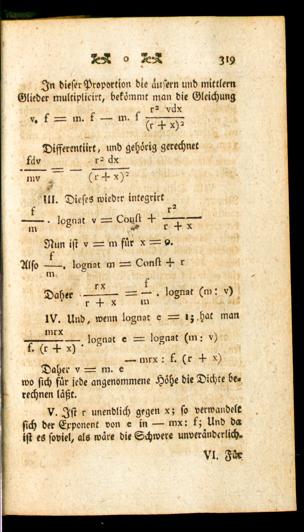 o 319
In dieser Proportion die äusern und mittlern
Glieder multiplicirt, bekömmt man die Gleichung
v. f = m. f — m. f r² vdx / (r + x)²
Differentiirt, und gehörig gerechnet
fdv / mv = — r² dx / (r + x)²
III. Dieses wieder integrirt
f / m . lognat v = Const + r² / r + x
Nun ist v = m für x = 0.
Also f / m . lognat m = Const + r
Daher rx / r + x = f / m . lognat (m : v)
IV. Und, wenn lognat e = 1; hat man
mrx / f. (r + x) . lognat e = lognat (m : v)
— mrx : f. (r + x)
Daher v = m. e
wo sich für jede angenommene Höhe die Dichte be-
rechnen läßt.
V. Ist r unendlich gegen x; so verwandelt
sich der Exponent von e in — mx : f; Und da
ist es soviel, als wäre die Schwere unveränderlich.
VI. Für